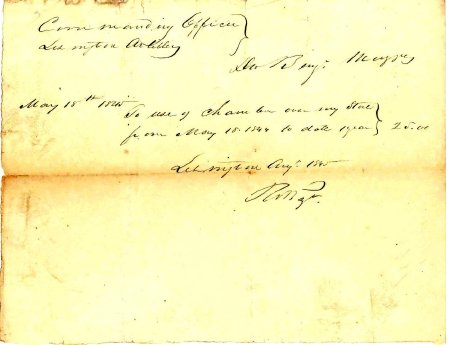 Commanding Officer
Lexington Artillery
Dr. Benj. Muzzey
May 18th 1845
To use of Chamber over my Store
from May 18. 1844 to date 1 year 25.00
Lexington Augt. 1845